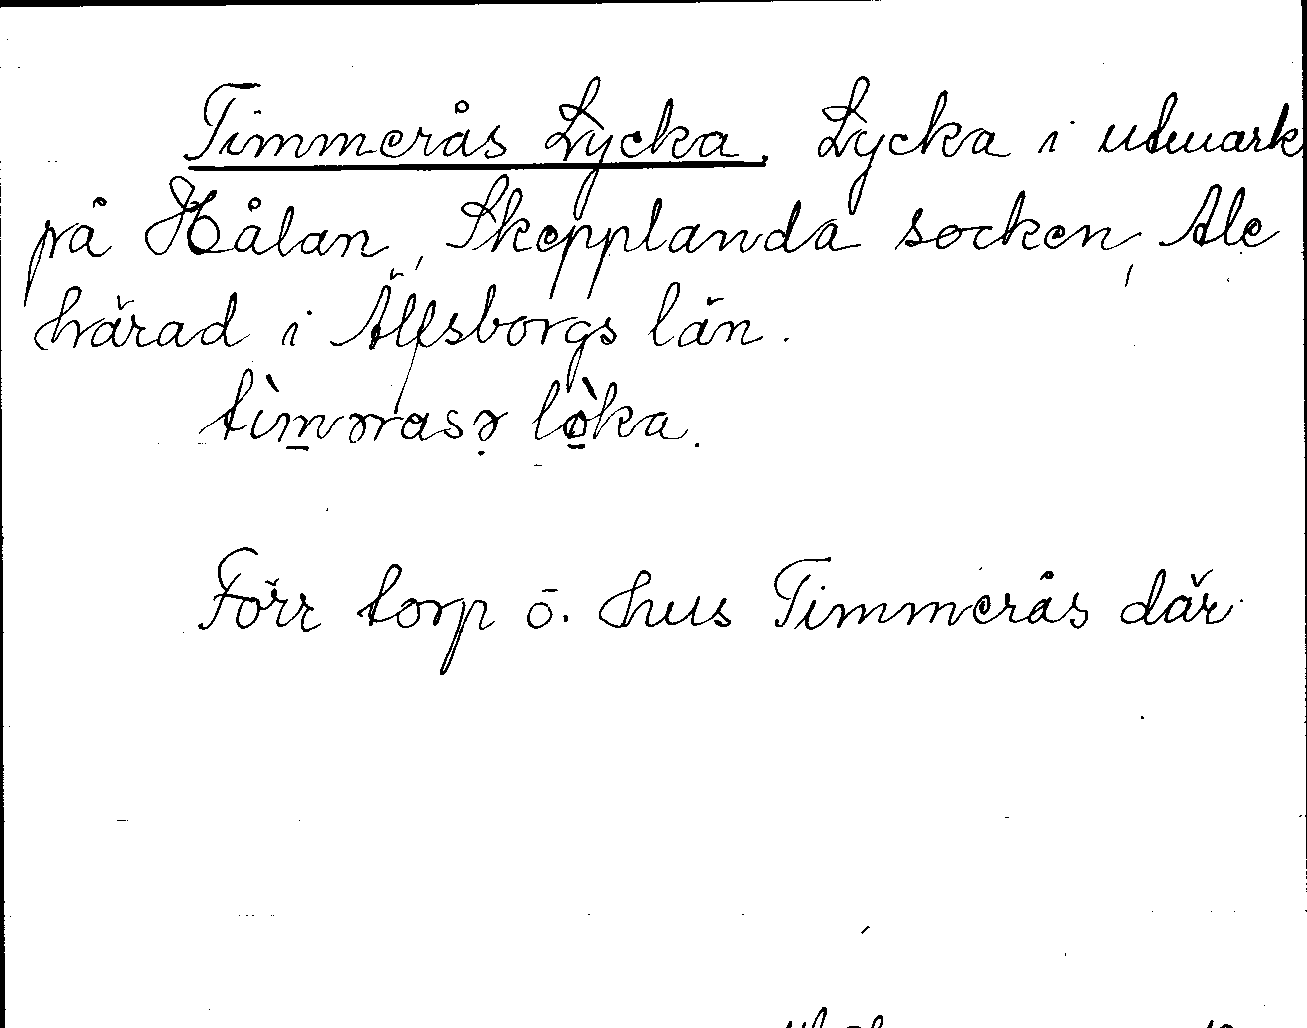 Timmerås Lycka. Lycka i utmark
på Hålan, Skepplanda socken, Ale
härad i Älfsborgs län.
tìm̲ərasə̣ lø̲̀ka.
Förr torp o. hus Timmerås där